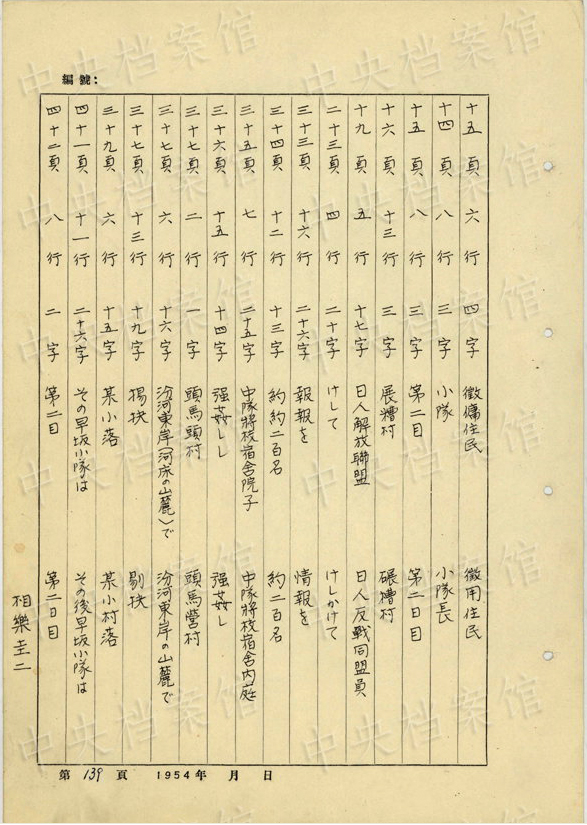 編號：
十五頁 六行 四字 徵傭住民 徵用住民
十四頁 八行 三字 小隊 小隊長
十五頁 八行 三字 第二目 第二日目
十六頁 十三行 三字 展糟村 碾糟村
十九頁 五行 十七字 日人解放聯盟 日人反戰同盟員
二十三頁 四行 二十字 けして けしかけて
三十三頁 十六行 二十六字 報報を 情報を
三十四頁 十二行 十三字 約約二百名 約二百名
三十五頁 七行 二十五字 中隊將校宿舍院子 中隊將校宿舍内庭
三十六頁 十五行 十四字 强姦しし 强姦し
三十七頁 二行 一字 頭馬頭村 頭馬營村
三十七頁 六行 十六字 汾河東岸河床の山麓〉で 汾河東岸の山麓で
三十七頁 十三行 十九字 揚抉 剔抉
三十九頁 六行 十五字 某小落 某小村落
四十一頁 十一行 二十六字 その早坂小隊は その後早坂小隊は
四十二頁 八行 二字 第二目 第二日目
相樂圭二
第139頁 1954年 月 日
中央档案馆